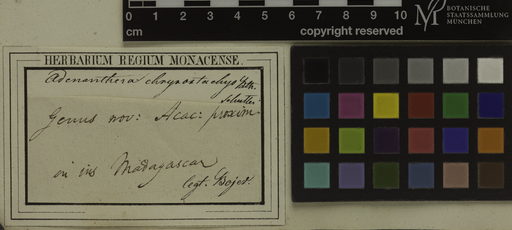 0 1 2 3 4 5 6 7 8 9 10
cm
copyright reserved
M
BOTANISCHE
STAATSSAMMLUNG
MÜNCHEN
HERBARIUM REGIUM MONACENSE.
Adenanthera chrysostachys
Genus nov: Acac: proxim
in ins Madagascar
legt. Bojer.